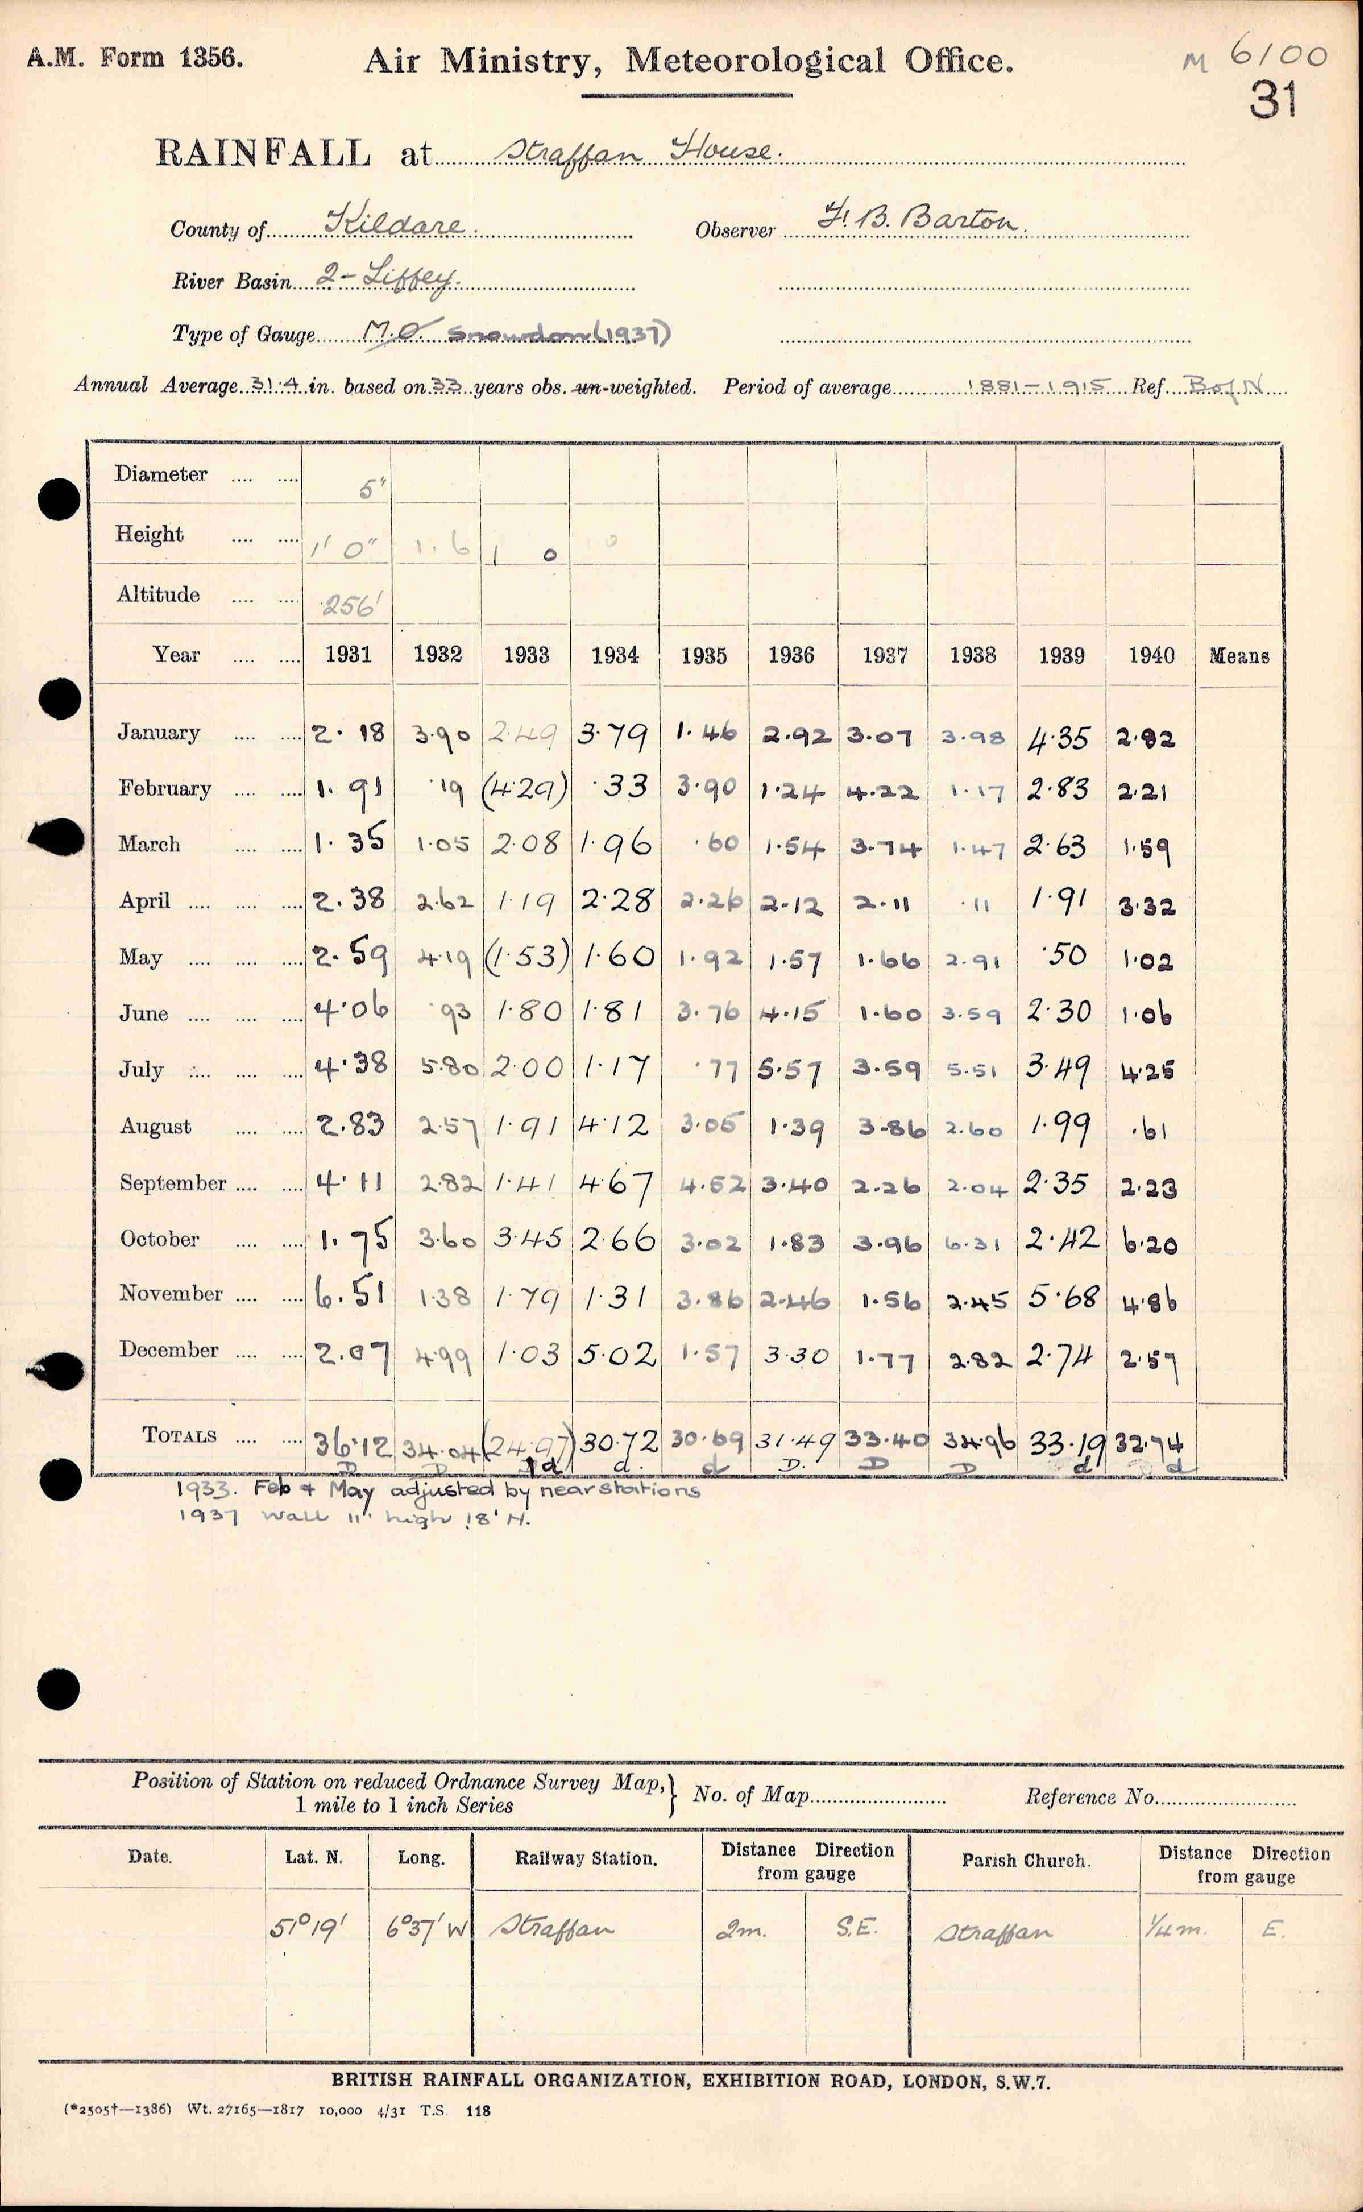 A.M. Form 1356.
Air Ministry, Meteorological Office.
M 6100
31
RAINFALL at Straffan House.
County of Kildare. Observer F. B. Barton.
River Basin 2-Liffey.
Type of Gauge M.O. Snowdon (1937)
Annual Average 31.4 in. based on 33 years obs. un-weighted. Period of average 1881-1915 Ref. B of N
Diameter 5"
Height 1' 0" 1. 6 1 0 0
Altitude 256'
Year 1931 1932 1933 1934 1935 1936 1937 1938 1939 1940 Means
January 2.18 3.90 2.49 3.79 1.46 2.92 3.07 3.98 4.35 2.82
February 1.91 .19 (4.29) .33 3.90 1.24 4.22 1.17 2.83 2.21
March 1.35 1.05 2.08 1.96 .60 1.54 3.74 1.47 2.63 1.59
April 2.38 2.62 1.19 2.28 2.26 2.12 2.11 .11 1.91 3.32
May 2.59 4.19 (1.53) 1.60 1.92 1.57 1.66 2.91 .50 1.02
June 4.06 .93 1.80 1.81 3.76 4.15 1.60 3.59 2.30 1.06
July 4.38 5.80 2.00 1.17 .77 5.57 3.59 5.51 3.49 4.25
August 2.83 2.57 1.91 4.12 3.05 1.39 3.86 2.60 1.99 .61
September 4.11 2.82 1.41 4.67 4.52 3.40 2.26 2.04 2.35 2.23
October 1.75 3.60 3.45 2.66 3.02 1.83 3.96 6.31 2.42 6.20
November 6.51 1.38 1.79 1.31 3.86 2.46 1.56 2.45 5.68 4.86
December 2.07 4.99 1.03 5.02 1.57 3.30 1.77 2.82 2.74 2.57
TOTALS 36.12 34.04 (24.97) 30.72 30.69 31.49 33.40 34.96 33.19 32.74
D D 1d d. d D. D D d d
1933. Feb & May adjusted by near stations
1937 wall 11" high 18' N.
Position of Station on reduced Ordnance Survey Map,} No. of Map Reference No.
1 mile to 1 inch Series
Date. Lat. N. Long. Railway Station. Distance Direction from gauge Parish Church. Distance Direction from gauge
51°19' 6°37' W Straffan 2m. S.E. Straffan 1/4 m. E.
BRITISH RAINFALL ORGANIZATION, EXHIBITION ROAD, LONDON, S.W.7.
(*2505†—1386) Wt. 27165—1817 10,000 4/31 T.S. 118